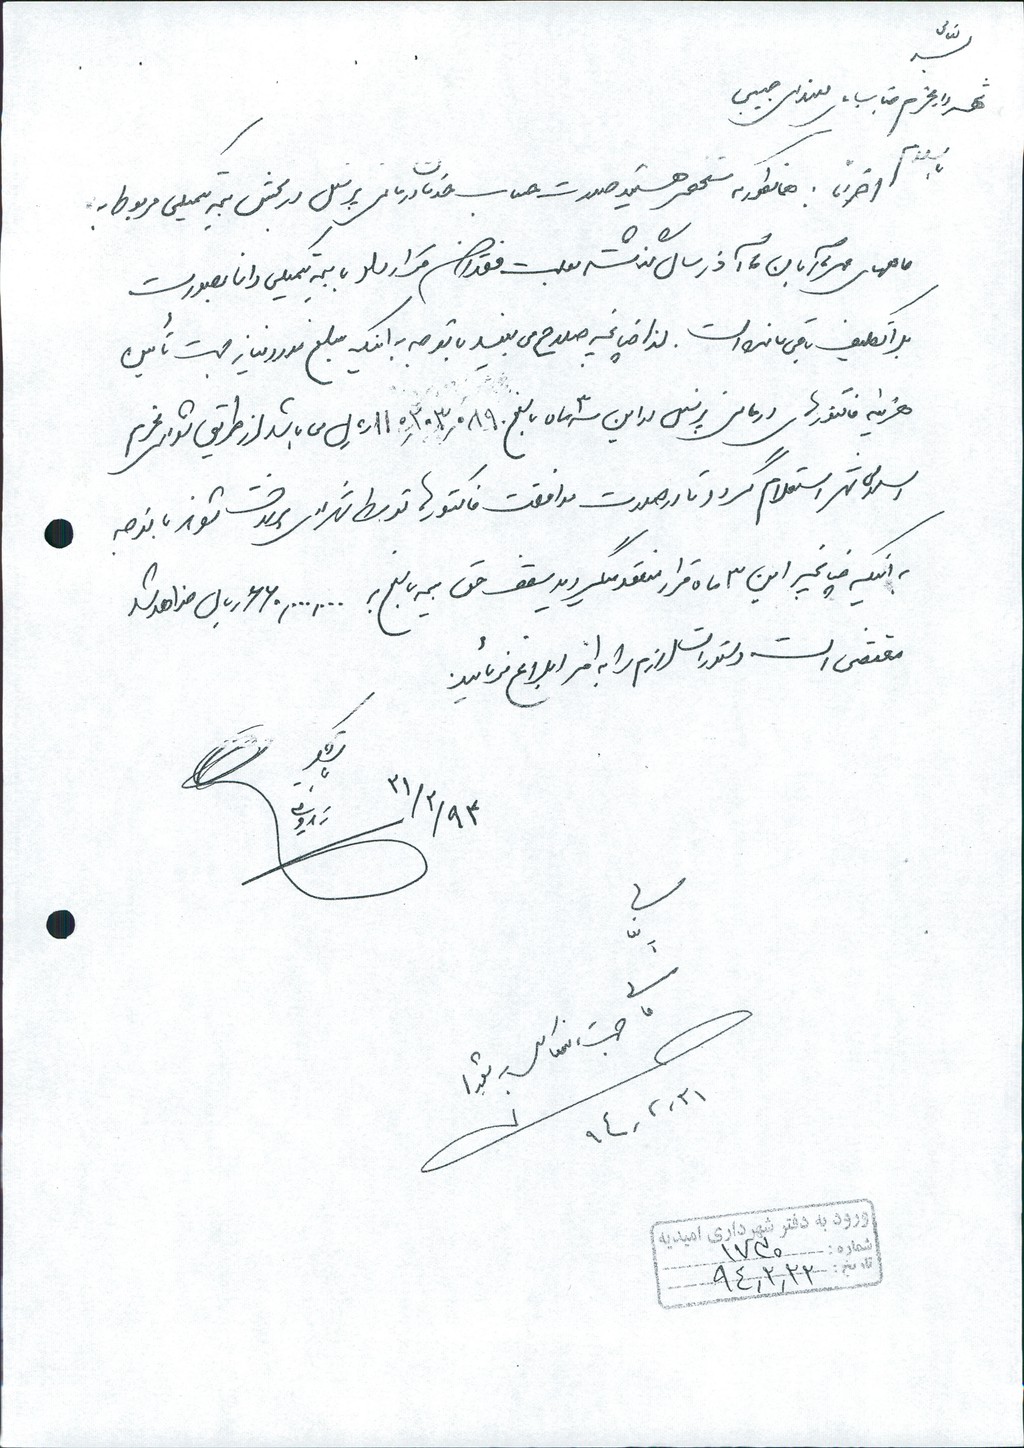 بسمه تعالی
شهردار محترم جناب آقای مهندس حبیبی
با سلام
احتراماً، همانطور که مستحضر هستید صورت حساب خدمات درمانی پرسنل در بخش بیمه تکمیلی مربوط به
ماههای مهر آبان آذر سال گذشته بعلت فقدان قرارداد با بیمه تکمیلی دانا بصورت
بلاتکلیف باقی مانده است. لذا چنانچه صلاح می بینید با توجه به اینکه مبلغ مورد نیاز جهت تأمین
هزینه فاکتورهای درمانی پرسنل در این ۳ ماه بالغ ریال می باشد از طریق شورای محترم
اسلامی شهر استعلام گردد تا در صورت موافقت فاکتورها توسط شهرداری پرداخت شوند با توجه
به اینکه چنانچه این ۳ ماه قرارداد منعقد میگردید سقف حق بیمه بالغ به ۶۶۰٫۰۰۰٫۰۰۰ ریال خواهد شد
مقتضی است دستورات لازم را به امر ابلاغ فرمائید.
با تشکر
۹۴/۲/۲۱
جهت
۹۴٫۲٫۲۱
ورود به دفتر شهرداری امیدیه
شماره: ۱۷۳۰
تاریخ: ۹۴٫۲٫۲۲